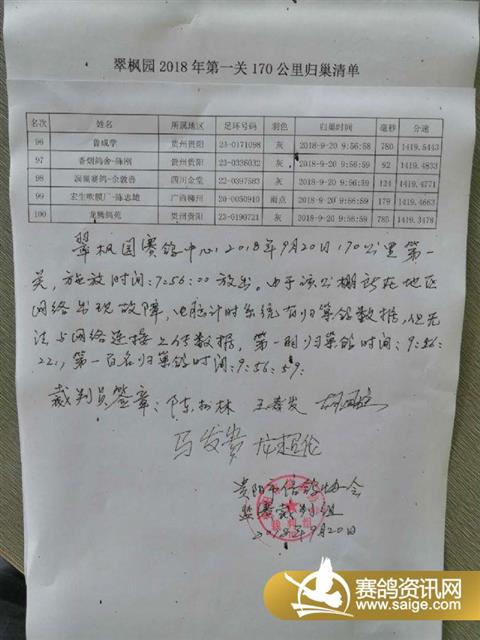 翠枫园2018年第一关170公里归巢清单
名次 姓名 所属地区 足环号码 羽色 归巢时间 毫秒 分速
96 鲁成学 贵州贵阳 23-0171098 灰 2018-9-20 9:56:58 780 1419.5443
97 香烟鸽舍-陈刚 贵州贵阳 23-0336032 灰 2018-9-20 9:56:59 92 1419.4833
98 余敦浩 四川金堂 22-0397583 灰 2018-9-20 9:56:59 124 1419.4771
99 宏生吹膜厂-陈志雄 广西柳州 20-0050910 雨点 2018-9-20 9:56:59 179 1419.4663
100 龙腾鸽苑 贵州贵阳 23-0190721 灰 2018-9-20 9:56:59 785 1419.3478
翠枫园赛鸽中心,2018年9月20日,170公里第一
关,施放时间:7:56:00放出。由于该公棚所在地区
网络出现故障,电脑计时系统有归巢鸽数据,但无
法与网络连接上传数据,第一名归巢鸽时间:9:56:
22,第一百名归巢鸽时间:9:56:59.
裁判员签章:陈松林 王春发
马发贵 龙超伦
贵阳市信鸽协会
监赛裁判组
2018年9月20日
赛鸽资讯网
www.saige.com